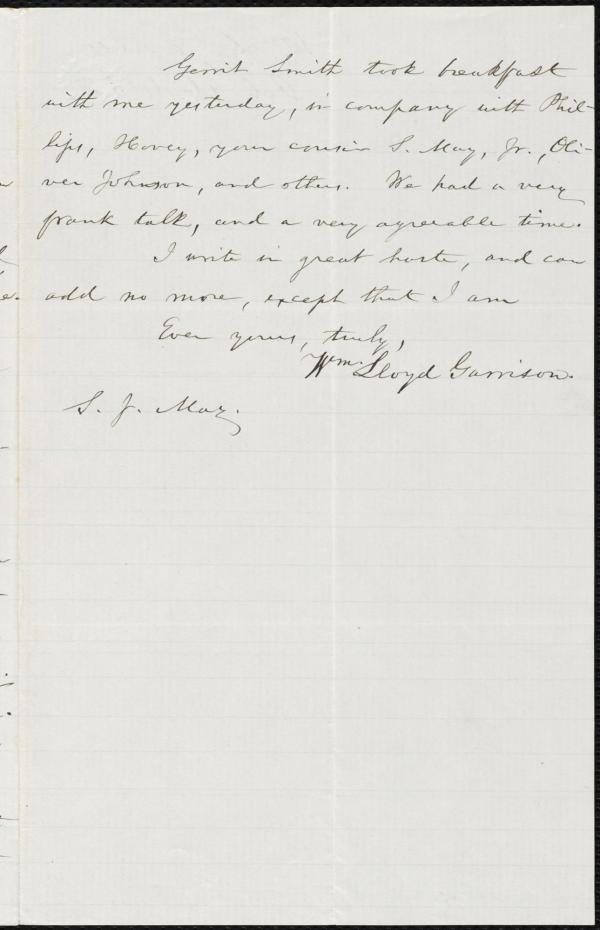 Gerrit Smith took breakfast
with me yesterday, in company with Phil-
lips, Hovey, your cousin S. May, Jr., Oli-
ver Johnson, and others. We had a very
frank talk, and a very agreeable time.
I write in great haste, and can
add no more, except that I am
Ever yours, truly,
Wm. Lloyd Garrison.
S. J. May.